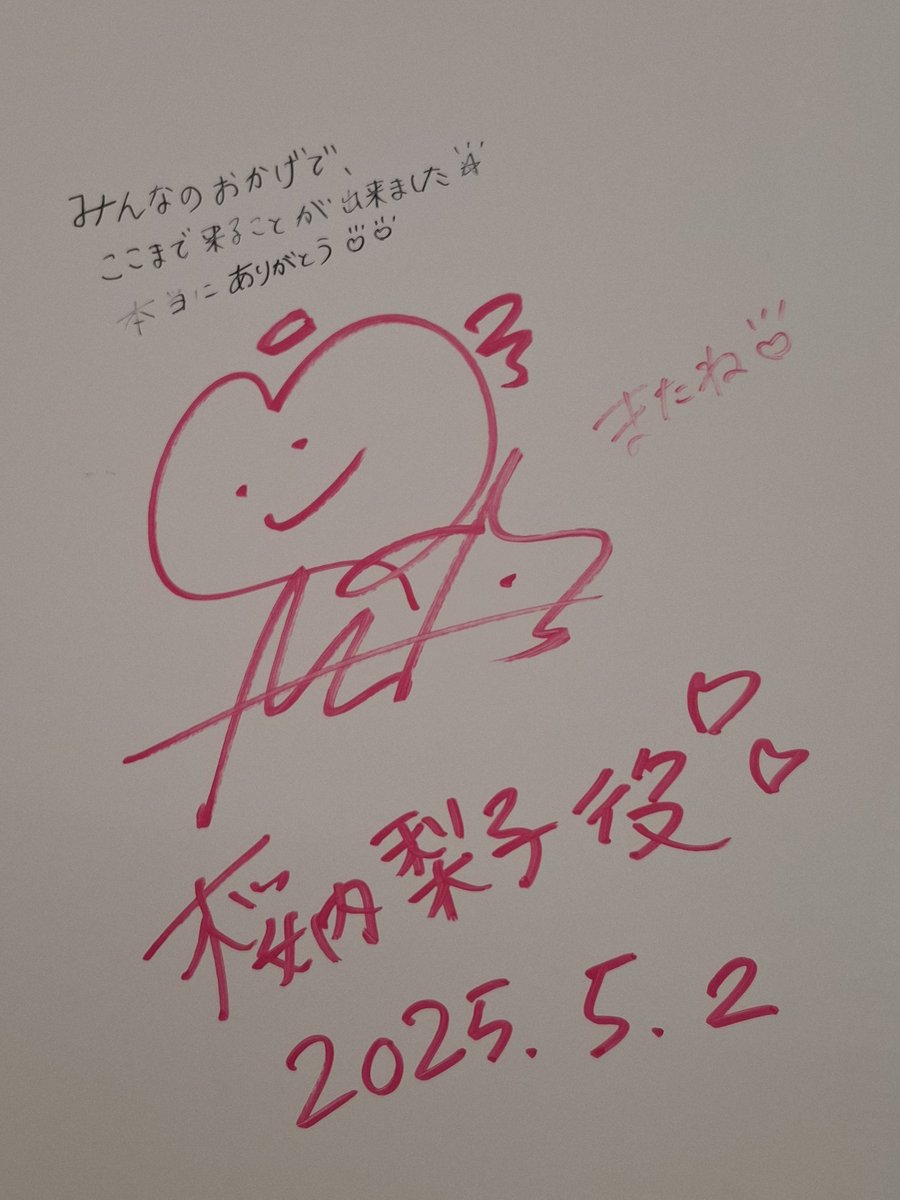 みんなのおかげで、
ここまで来ることが出来ました☆
本当にありがとう♡♡
またね♡
桜内梨子役♡♡
2025.5.2